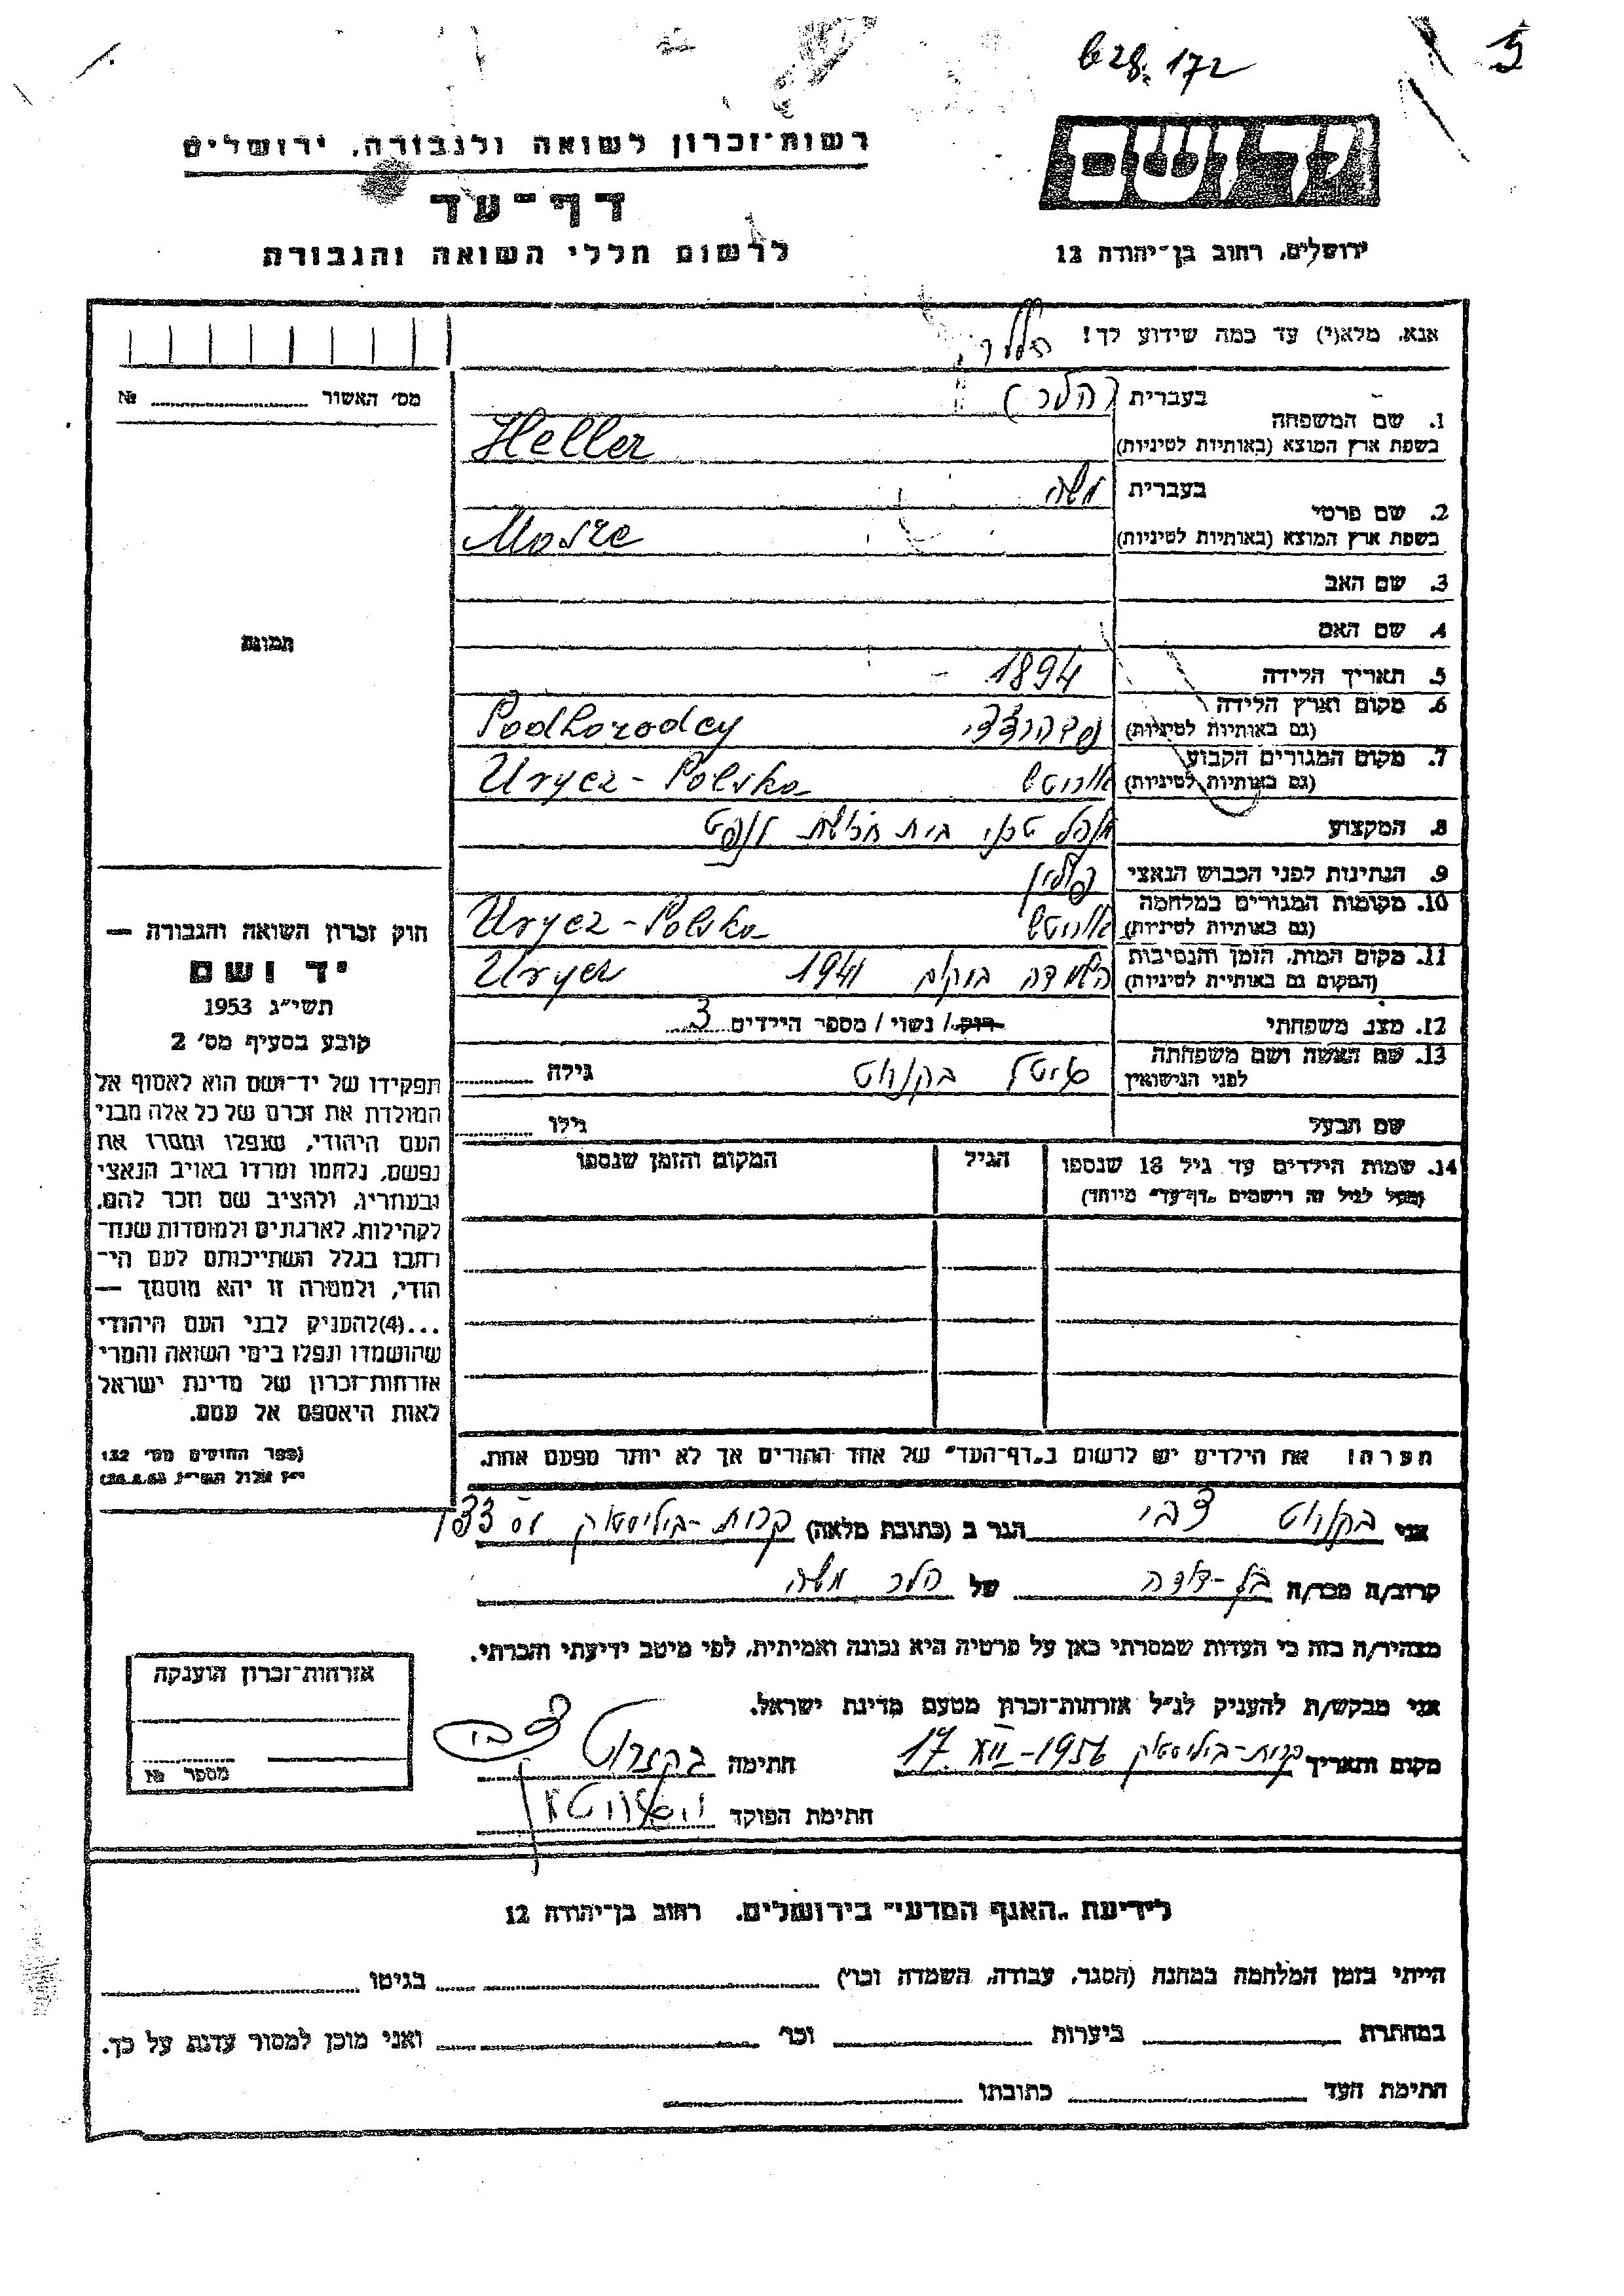 628.172
5
רשות־זכרון לשואה ולגבורה, ירושלים
יד ושם
דף־עד
לרשום חללי השואה והגבורה
ירושלים, רחוב בן־יהודה 12
אנא, מלא(י) עד כמה שידוע לך!
מס׳ האשור № 
1. שם המשפחה
בעברית (הלר)
בשפת ארץ המוצא (באותיות לטיניות) Heller
2. שם פרטי
בעברית משה
בשפת ארץ המוצא (באותיות לטיניות) Mosze
3. שם האב
4. שם האם
תמונה
5. תאריך הלידה 1894 -
6. מקום וארץ הלידה
(גם באותיות לטיניות) Podhorodcy
7. מקום המגורים הקבוע
(גם באותיות לטיניות) אוריטש Urycz - Polska
8. המקצוע בית חרושת
9. הנתינות לפני הכבוש הנאצי פולין
10. מקומות המגורים במלחמה
(גם באותיות לטיניות) אוריטש Urycz - Polska
11. מקום המות, הזמן והנסיבות
(המקום גם באותיות לטיניות) השמדה 1941 Urycz
12. מצב משפחתי רוק / נשוי / מספר הילדים 3
13. שם האשה ושם משפחתה
לפני הנישואין גילה
שם הבעל גילו
14. שמות הילדים עד גיל 18 שנספו
(מעל לגיל זה רושמים „דף־עד״ מיוחד)
הגיל
המקום והזמן שנספו
חוק זכרון השואה והגבורה —
יד ושם
תשי״ג 1953
קובע בסעיף מס׳ 2
תפקידו של יד־ושם הוא לאסוף אל
המולדת את זכרם של כל אלה מבני
העם היהודי, שנפלו ומסרו את
נפשם, נלחמו ומרדו באויב הנאצי
ובעוזריו, ולהציב שם וזכר להם,
לקהילות, לארגונים ולמוסדות שנח־
רחבו בגלל השתייכותם לעם הי־
הודי, ולמטרה זו יהא מוסמך —
...(4)להעניק לבני העם היהודי
שהושמדו ונפלו בימי השואה והמרי
אזרחות־זכרון של מדינת ישראל
לאות היאספם אל עמם.
(ספר החוקים מס׳ 132
הערה! את הילדים יש לרשום ב„דף־העד״ של אחד ההורים אך לא יותר מפעם אחת.
אני צבי הגר ב (כתובת מלאה) קרית-ביליסטוק
קרוב/ה מכר/ה בן-דודה של הלר משה
מצהיר/ה בזה כי העדות שמסרתי כאן על פרטיה היא נכונה ואמיתית, לפי מיטב ידיעתי והכרתי.
אני מבקש/ת להעניק לנ״ל אזרחות־זכרון מטעם מדינת ישראל.
מקום ותאריך קרית-ביליסטוק 17.XII-1956 חתימה צבי
חתימת הפוקד
אזרחות־זכרון הוענקה
מספר №
לידיעת „האגף המדעי״ בירושלים, רחוב בן־יהודה 12
הייתי בזמן המלחמה במחנה (הסגר, עבודה, השמדה וכו׳) בגיטו
במחתרת ביערות וכו׳ ואני מוכן למסור עדות על כך.
חתימת העד כתובתו